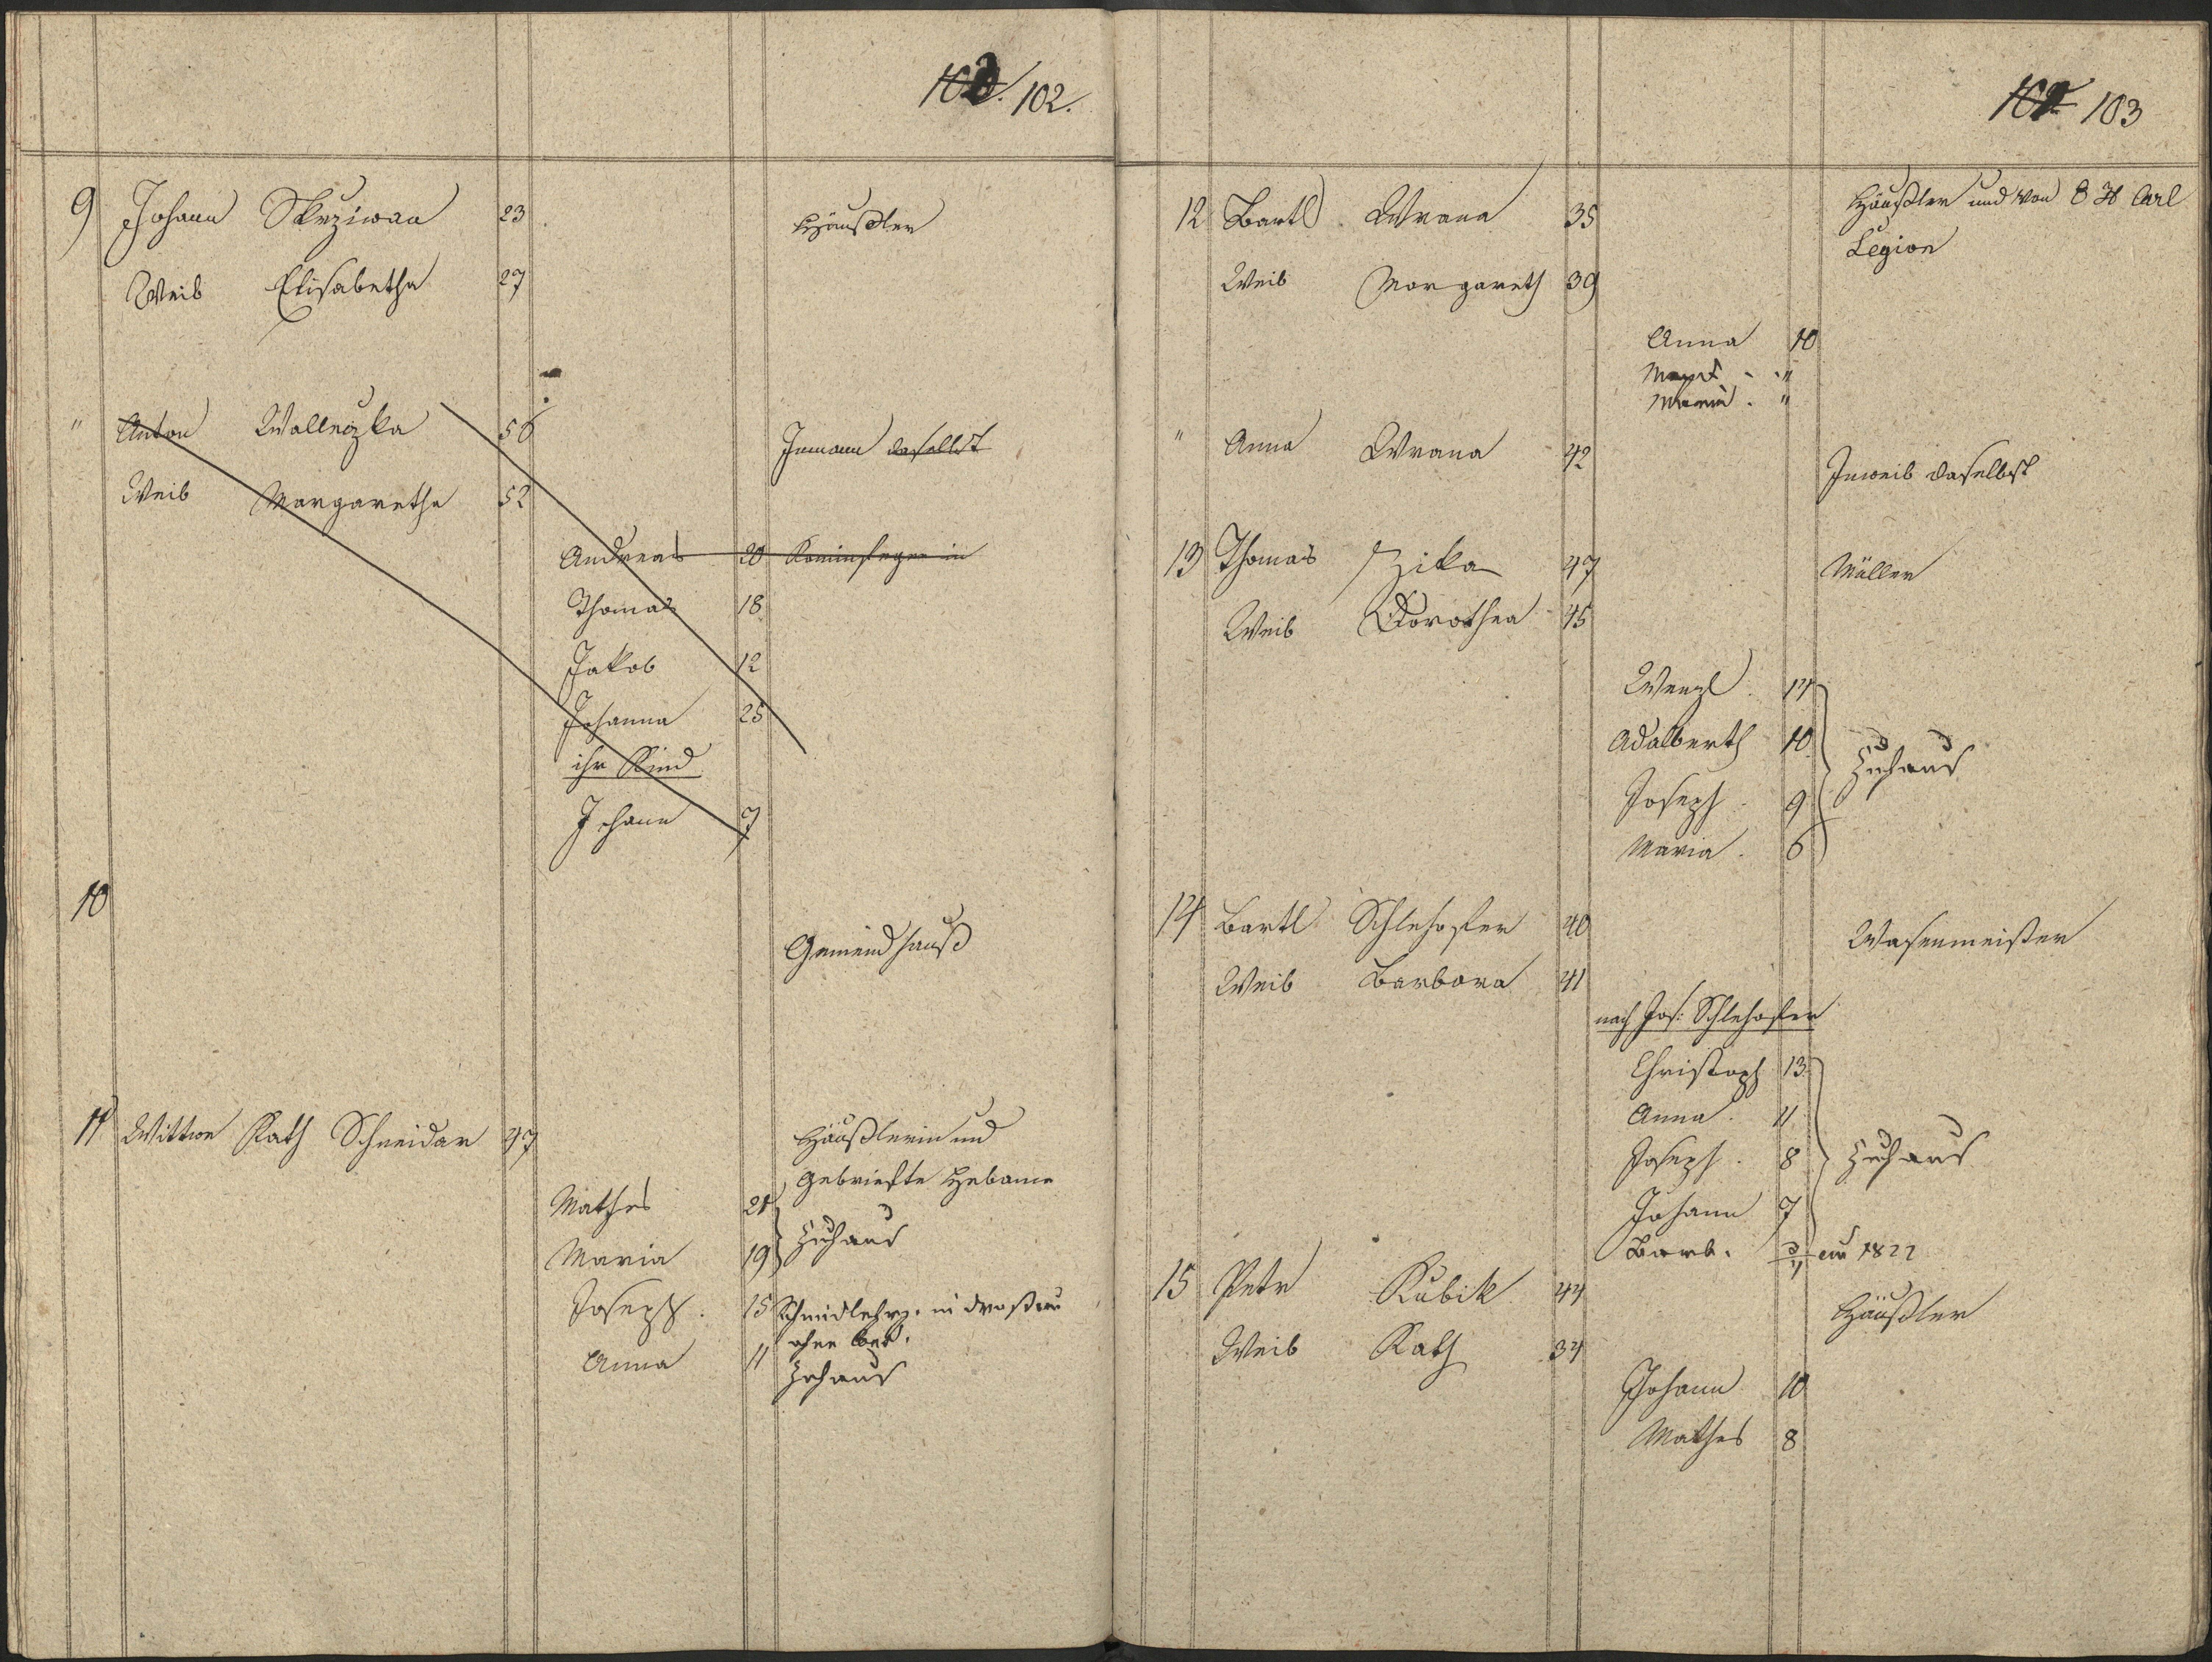 102.
9 Johann Skrziwan 23 Häußler
Weib Elisabetha 27
" Anton Walleczka 56 Inmann daselbst
Weib Margaretha 52
Andreas 20 Kaminfeger in
Thomas 18
Jakob 12
Johanna 25
ihr Kind
Johann 7
10
Gemeind hauß
11 Wittwe Kath Schneidar 47 Häußlerin und
geprüfte Hebame
Mathes 21
Zuhaus
Maria 19
Joseph. 15 Schmidlehrj. in
ohne
Anna 11 Zuhaus
103
12 Bartl Wrana 35 Häußler und von 8 Carl
Legion
Weib Margareth 39
Anna 10
Maria. "
" Anna Wrana 42
Inweib daselbst
13 Thomas Zika 47 Müller
Weib Dorothea 45
Wenzl. 14
Adalberth 10
Zuhaus
Joseph. 9
Maria. 6
14 Bartl Schlehofer 40 Wasenmeister
Weib Barbara 41
nach Jos: Schlehofer
Christoph 13
Anna. 11
Joseph. 8 Zuhaus
Johann 7
Barb. 1822
15 Petr Kubik 44 Häußler
Weib Kath 34
Johann 10
Mathes 8